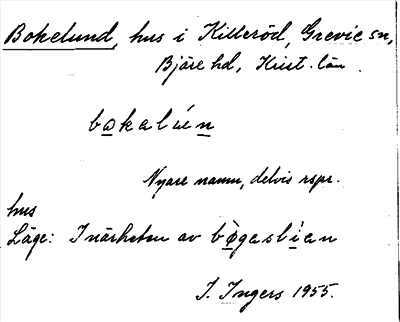 Bokelund, hus i Killeröd, Grevie sn,
Bjäre hd, Krist. län.
Nyare namn, delvis rspr.
hus
Läge: I närheten av bøgaslien
I. Ingers 1955.